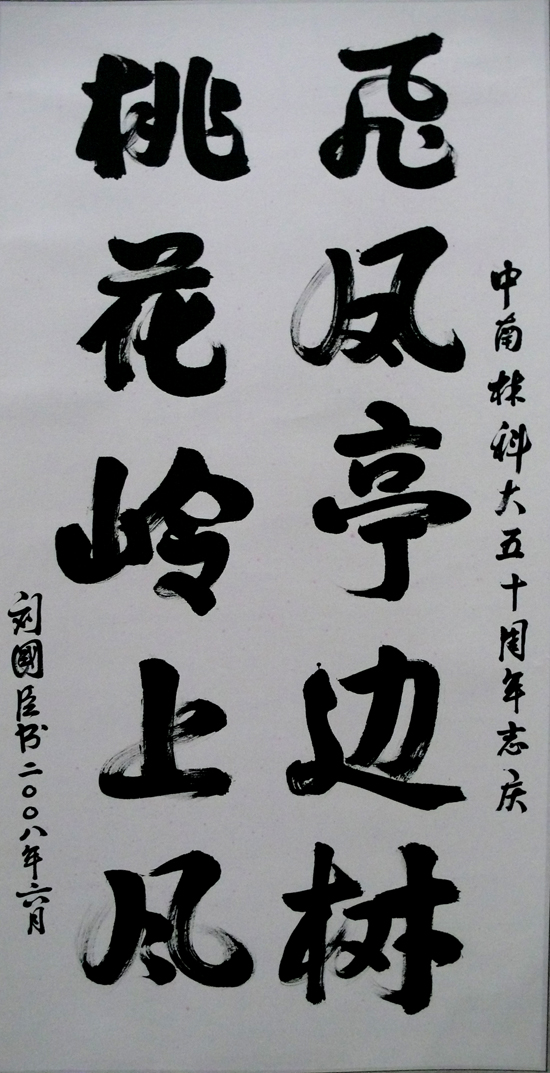 中南林科大五十周年志庆
飞凤亭边树
桃花岭上风
刘國臣书二〇〇八年六月